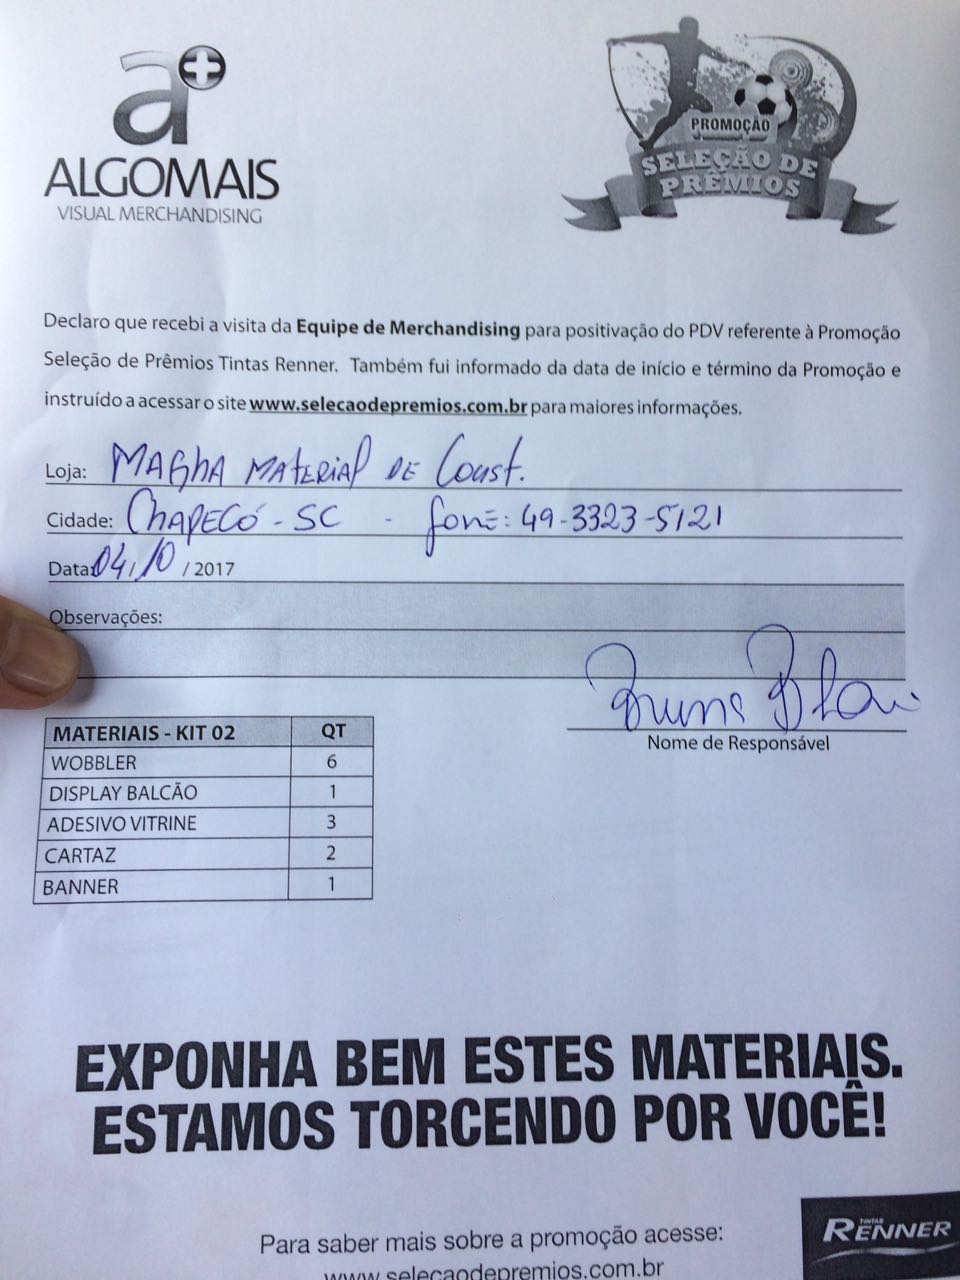 a+
ALGOMAIS
VISUAL MERCHANDISING
PROMOÇÃO
SELEÇÃO DE
PRÊMIOS
Declaro que recebi a visita da Equipe de Merchandising para positivação do PDV referente à Promoção
Seleção de Prêmios Tintas Renner. Também fui informado da data de início e término da Promoção e
instruído a acessar o site www.selecaodepremios.com.br para maiores informações.
Loja: MAGhA MATERIAL DE Const.
Cidade: CHAPECÓ - SC - fone: 49-3323-5121
Data: 04/10/2017
Observações:
Nome de Responsável
MATERIAIS - KIT 02 QT
WOBBLER 6
DISPLAY BALCÃO 1
ADESIVO VITRINE 3
CARTAZ 2
BANNER 1
EXPONHA BEM ESTES MATERIAIS.
ESTAMOS TORCENDO POR VOCÊ!
Para saber mais sobre a promoção acesse:
www.selecaodepremios.com.br
TINTAS
RENNER